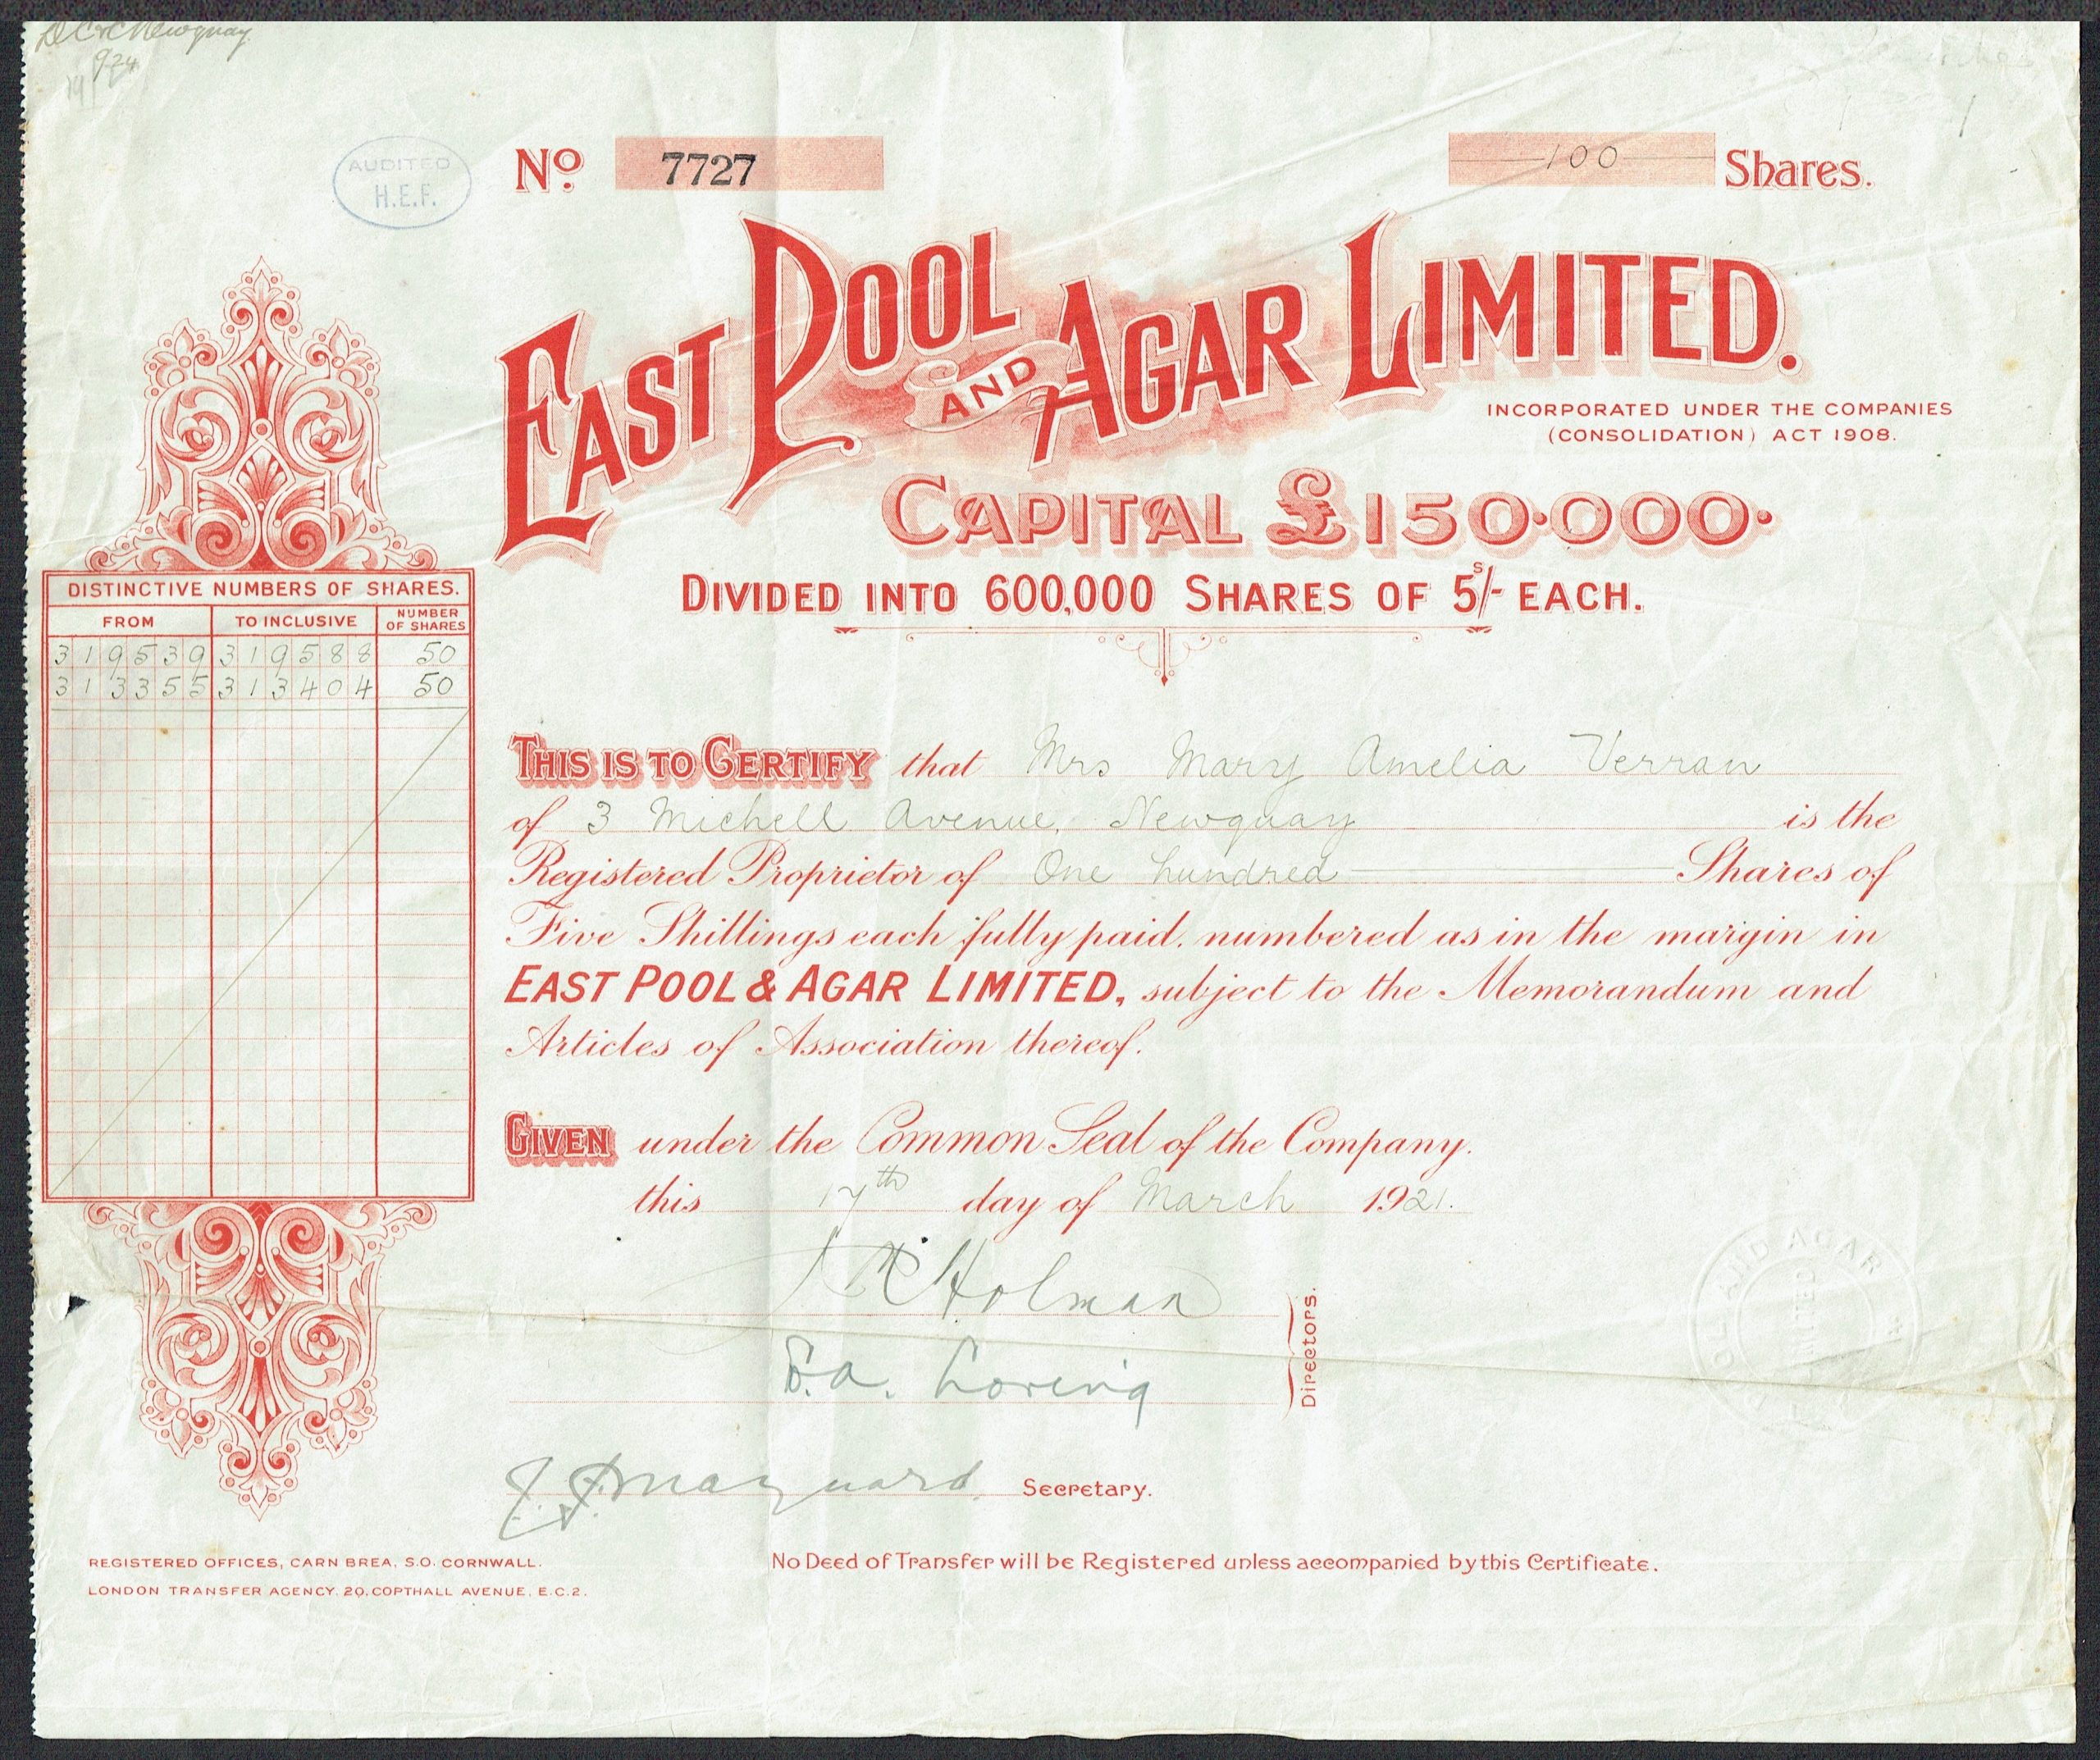 Newquay
No. 7727
100 Shares.
AUDITED
H.E.F.
EAST POOL AND AGAR LIMITED.
INCORPORATED UNDER THE COMPANIES
(CONSOLIDATION) ACT 1908.
CAPITAL £150·000·
DIVIDED INTO 600,000 SHARES OF 5s/- EACH.
DISTINCTIVE NUMBERS OF SHARES.
FROM TO INCLUSIVE NUMBER OF SHARES
319539 319588 50
313355 313404 50
THIS IS TO CERTIFY that Mrs Mary Amelia Verran
of 3 Michell Avenue, Newquay is the
Registered Proprietor of One hundred Shares of
Five Shillings each fully paid, numbered as in the margin in
EAST POOL & AGAR LIMITED, subject to the Memorandum and
Articles of Association thereof.
GIVEN under the Common Seal of the Company.
this 17th day of March 1921.
Holman
E.A. Loring
Directors.
J. J. Maynard Secretary.
AND AGAR
LIMITED
REGISTERED OFFICES, CARN BREA, S.O. CORNWALL.
LONDON TRANSFER AGENCY, 20, COPTHALL AVENUE, E.C.2.
No Deed of Transfer will be Registered unless accompanied by this Certificate.